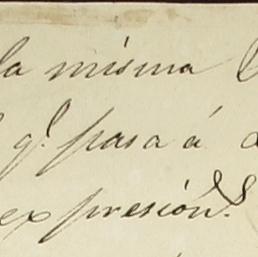 la misma
q.e pasa á
expresión.